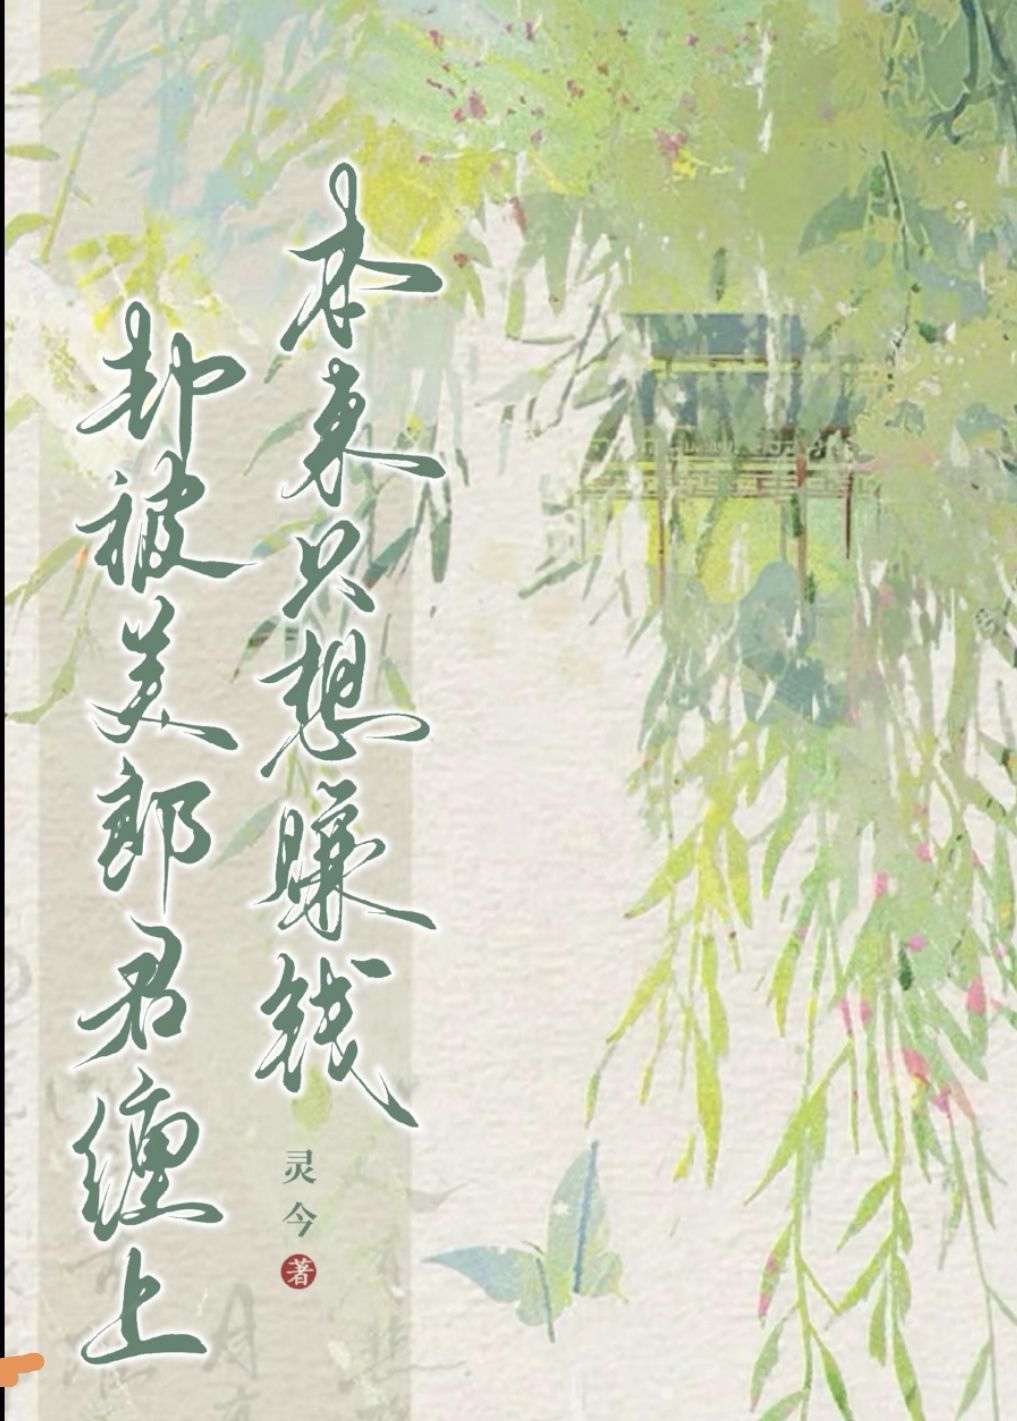 本来只想赚钱
却被美郎君缠上
灵今
著